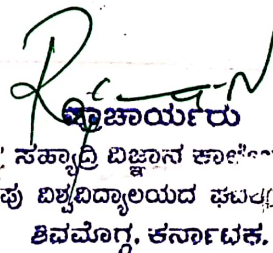 ಪ್ರಾಚಾರ್ಯರು
ಸಹ್ಯಾದ್ರಿ ವಿಜ್ಞಾನ
ವಿಶ್ವವಿದ್ಯಾಲಯದ
ಶಿವಮೊಗ್ಗ, ಕರ್ನಾಟಕ.